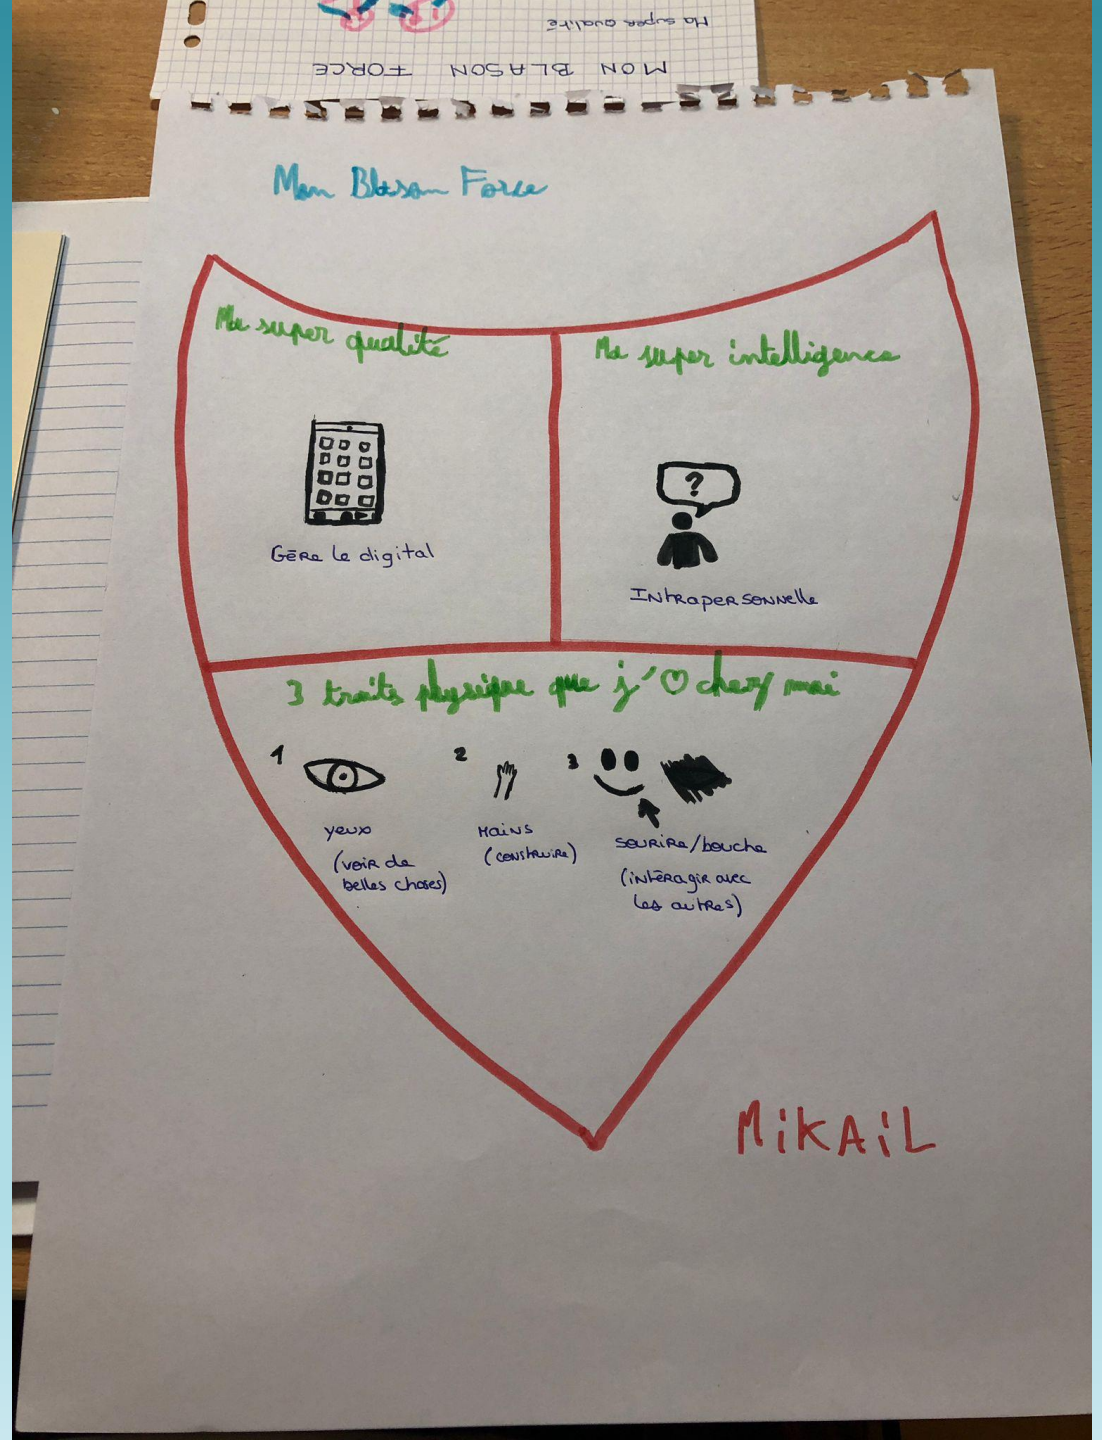 Ma super qualité
MON BLASON FORCE
Mon Blason Force
Ma super qualité
Ma super intelligence
?
Gēre le digital
Intrapersonnelle
3 traits physique que j'♡ chez moi
1
2
3
yeux
(voir de
belles choses)
Mains
(construire)
sourire/bouche
(intēragir avec
les autres)
MiKAiL